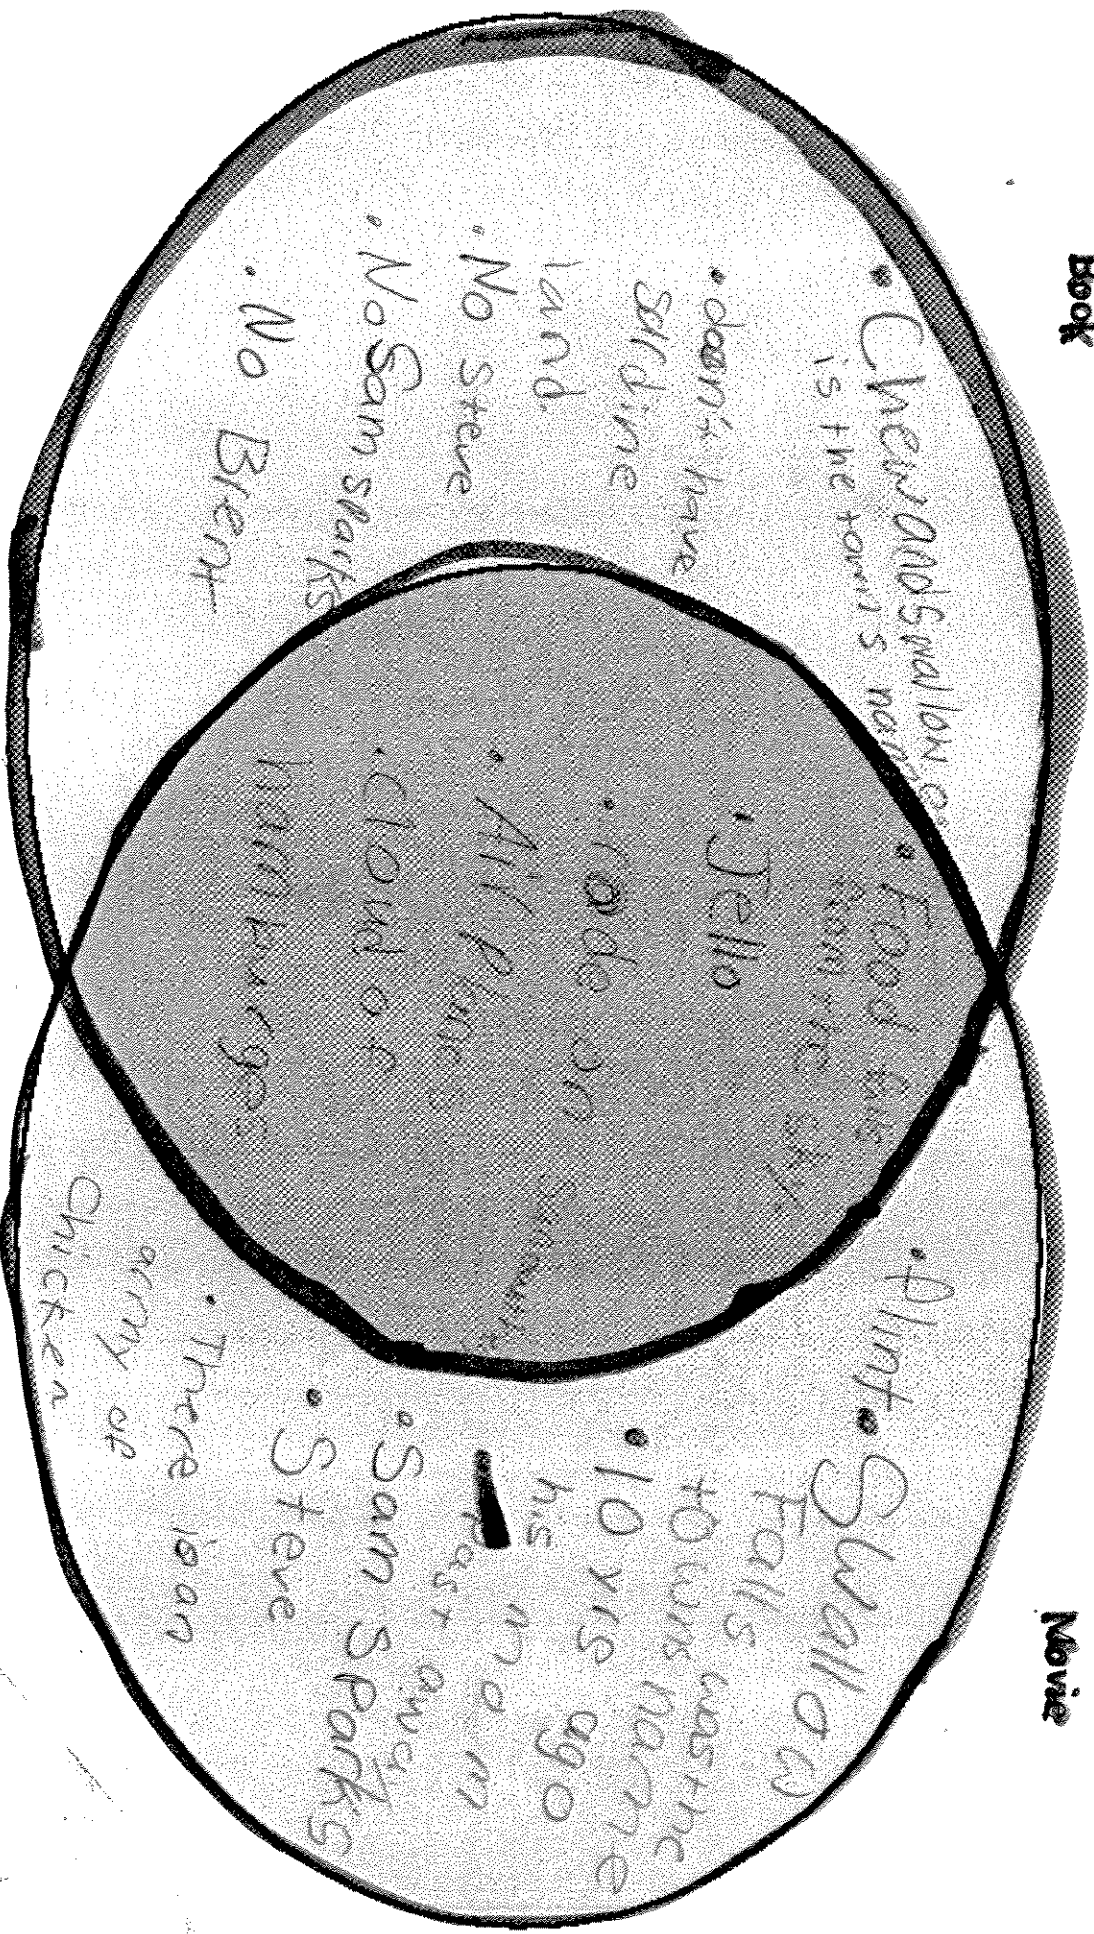 Book
• ChewandSwallow
is the town's name
• doesn't have
sardine
land.
• No Steve
• No Sam sparks
• No Brent
• Food
from the sky
• Jello
•
• Air Planes
• Cloud of
hamburge
Movie
• flint
• Swallow
Falls
towns was the
name
• 10 yrs ago
his mom
past away
• Sam Sparks
• Steve
• There is an
army of
Chicken